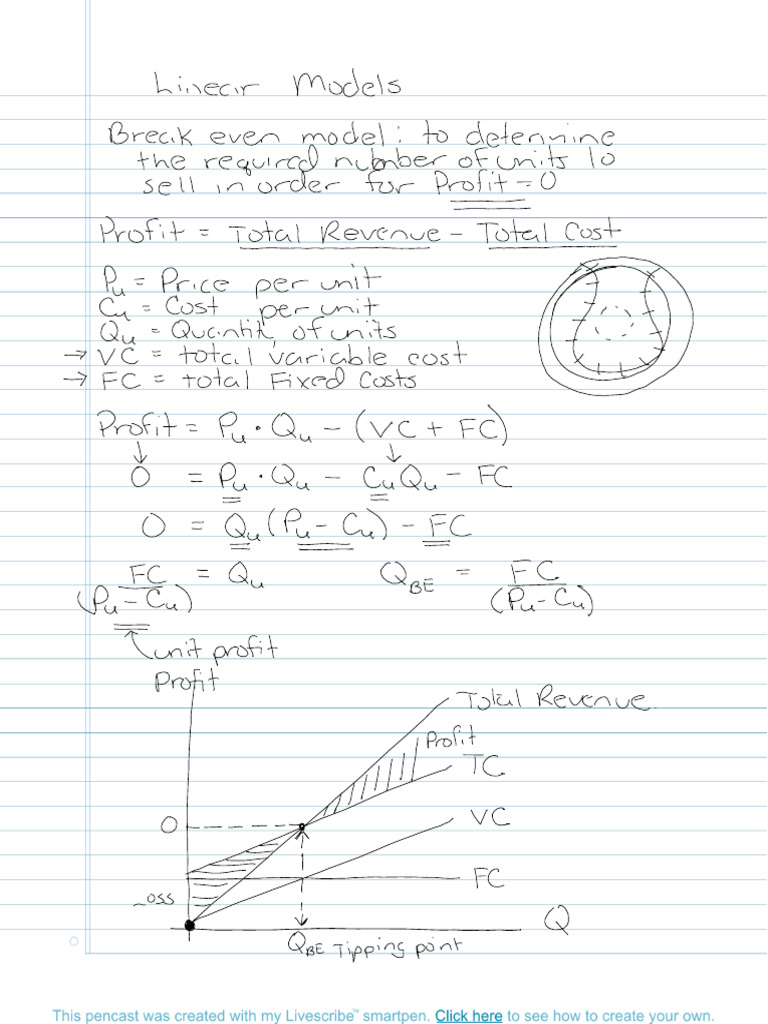 Linear Models
Break even model: to determine
the required number of units to
sell in order for Profit = 0
Profit = Total Revenue - Total Cost
Pu = Price per unit
Cu = Cost per unit
Qu = Quantity of units
→ VC = total variable cost
→ FC = total Fixed Costs
Profit = Pu · Qu - (VC + FC)
↓ ↓
0 = Pu · Qu - CuQu - FC
0 = Qu (Pu - Cu) - FC
FC / (Pu - Cu) = Qu QBE = FC / (Pu - Cu)
unit profit
Profit
Total Revenue
Profit
TC
0
VC
FC
Loss
Q
QBE Tipping point
This pencast was created with my Livescribe™ smartpen. Click here to see how to create your own.